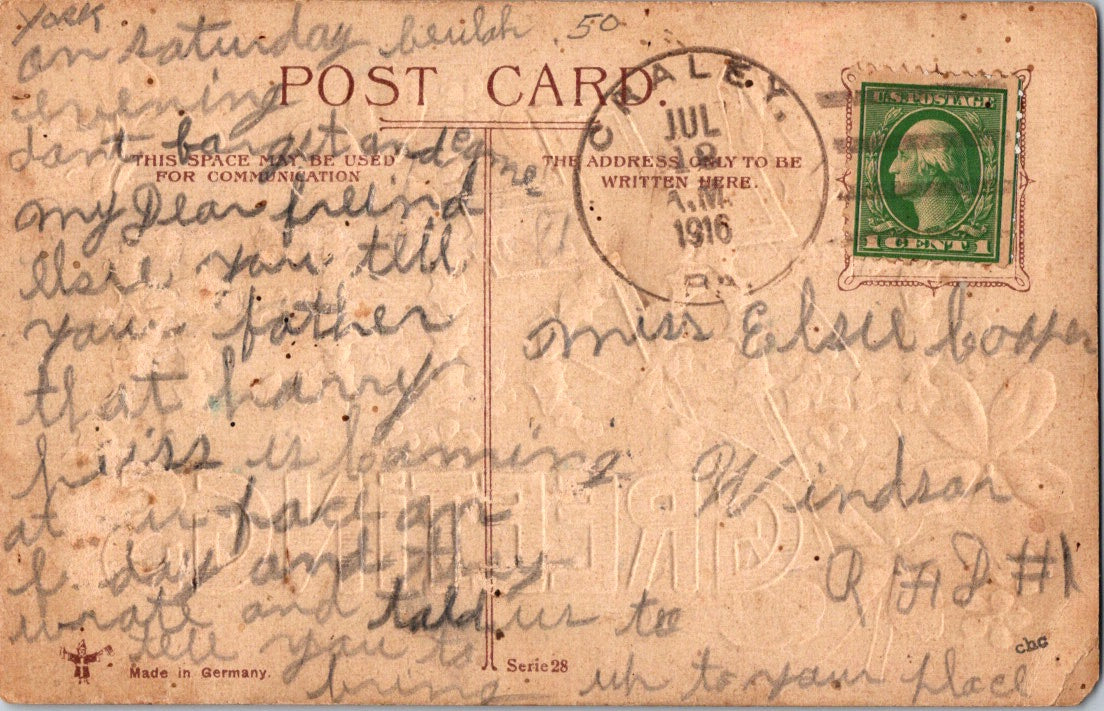 York
on saturday beulah 50
evening
dont forget and come
POST CARD.
THIS SPACE MAY BE USED
FOR COMMUNICATION
THE ADDRESS ONLY TO BE
WRITTEN HERE.
CRALEY,
JUL
A.M.
1916
PA.
U.S. POSTAGE
1 CENT 1
my Dear freind
Elsie you tell
your father
that harry
is coming
at
day and they
wrote and told us to
tell you to
bring up to your place
Miss Elsie Cooper
Windsor
R F D #1
GREETINGS
Made in Germany.
Serie 28
cbc